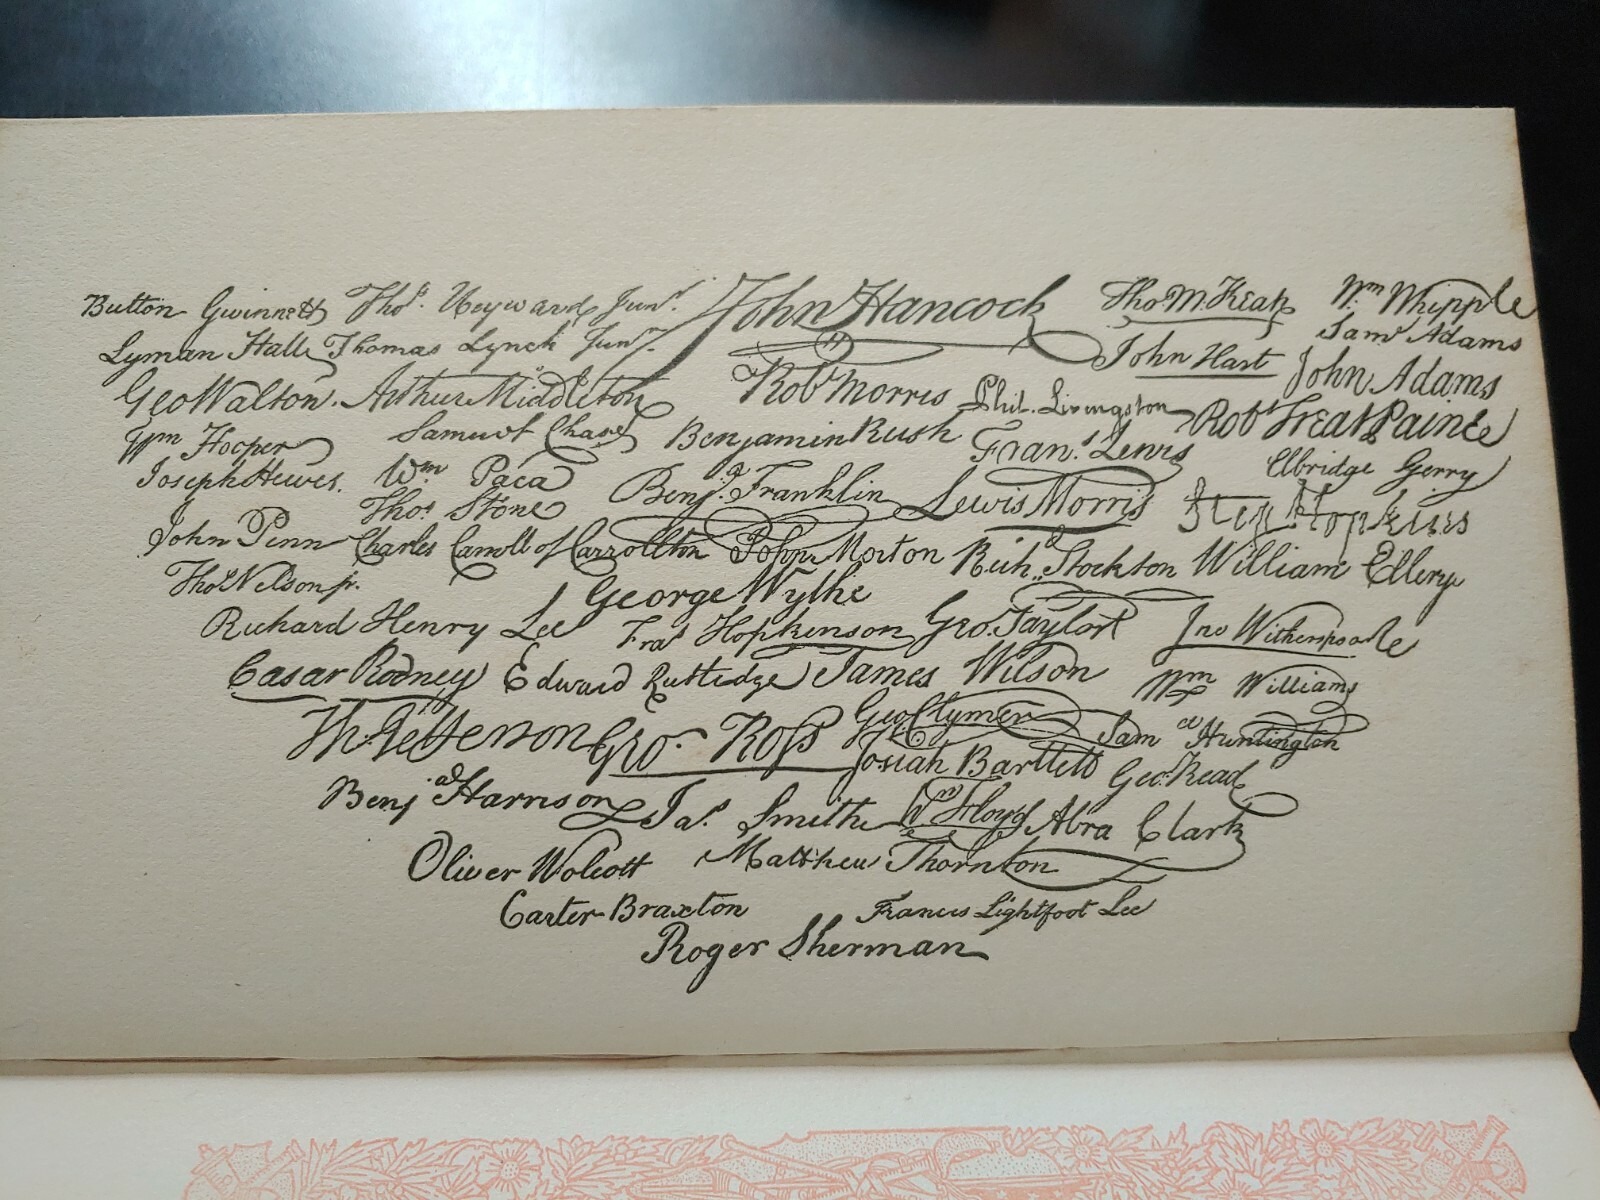 Button Gwinnett Thos. Heyward Junr. John Hancock Tho M:Kean Wm Whipple
Lyman Hall Thomas Lynch Junr. John Hart Saml Adams
Geo Walton. Arthur Middleton Robt Morris Phil. Livingston John Adams
Wm Hooper Samuel Chase Benjamin Rush Frans. Lewis Robt Treat Paine
Joseph Hewes. Wm Paca Benj. Franklin Lewis Morris Elbridge Gerry
John Penn Thos Stone John Morton Step Hopkins
Charles Carroll of Carrollton Richd. Stockton William Ellery
Thos Nelson jr. George Wythe
Richard Henry Lee Fras Hopkinson Geo. Taylor Jno Witherspoon
Cæsar Rodney Edward Rutledge James Wilson Wm Williams
Th Jefferson Geo. Ross Geo Clymer Saml Huntington
Josiah Bartlett Geo. Read
Benj Harrison Jas. Smith Wm Floyd Abra Clark
Oliver Wolcott Matthew Thornton
Carter Braxton Francis Lightfoot Lee
Roger Sherman